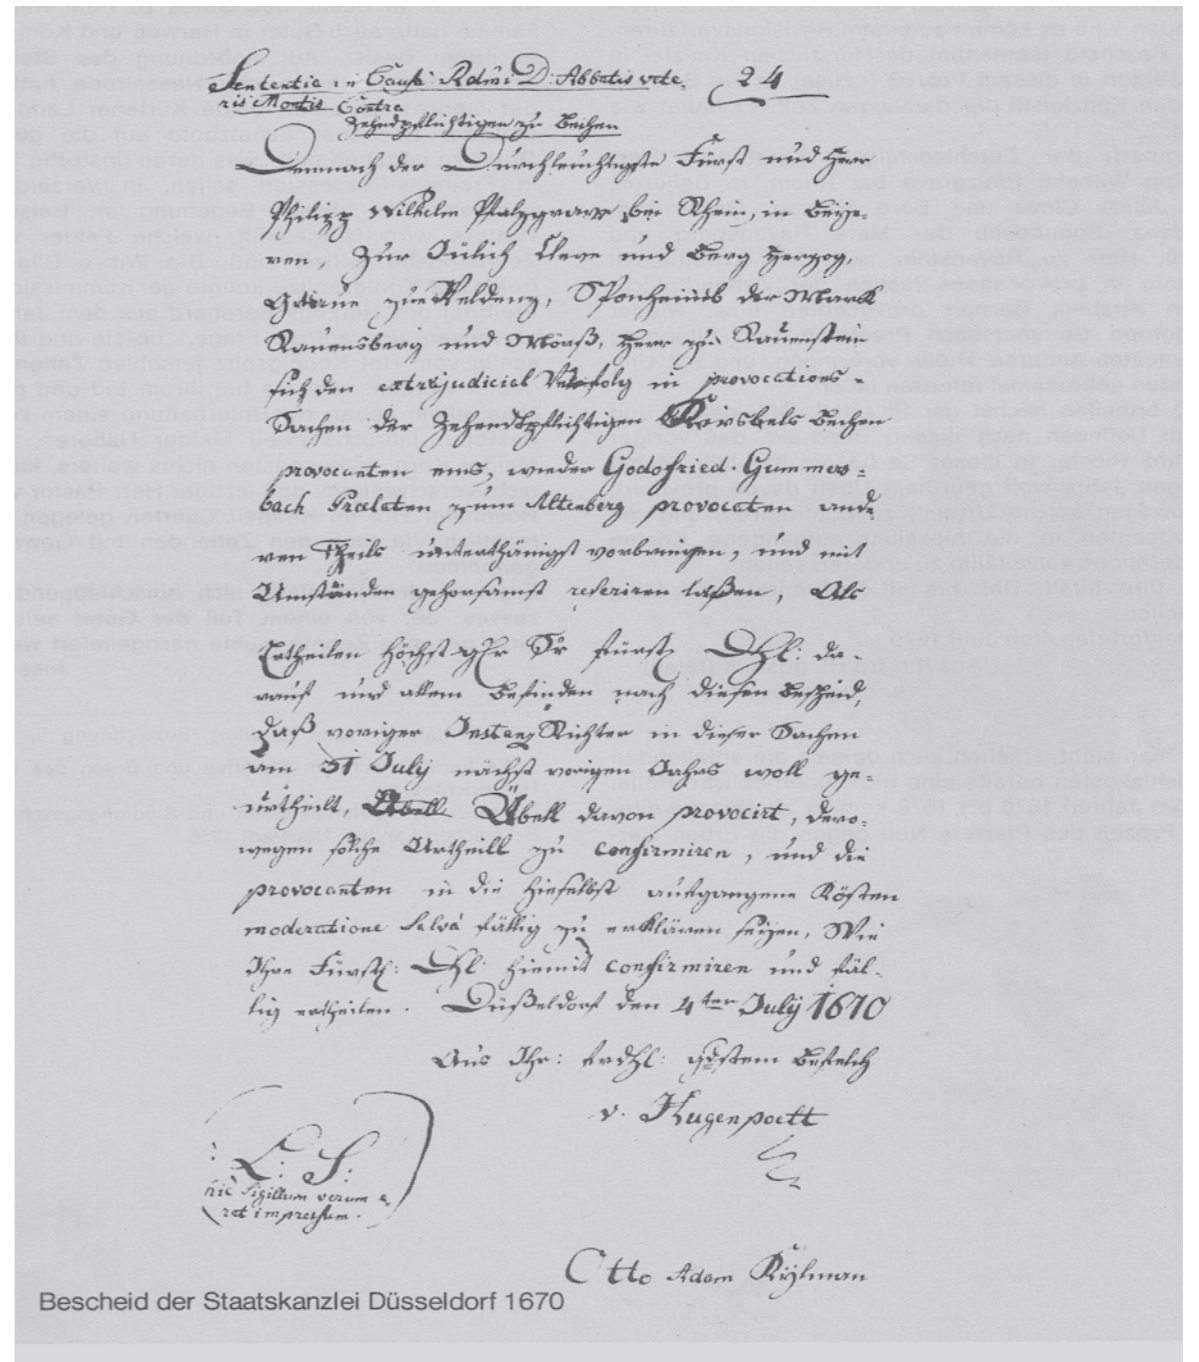 Sententia in Causa Rdmi D: Abbatis vete-
24
ris Montis Contra
Zehendpflichtigen zu Bechen
Demnach der Durchleuchtigste Fürst und Herr
Philipp Wilhelm Pfalzgrave bei Rhein, in Beye-
ren, zur Gülich Cleve und Berg Herzog,
Grave zue Veldenz, Sponheimb der Marck
Ravensberg und Mörß, Herr zue Ravenstein
sich den extrajudicial Verfolg in provocations-
Sachen der Zehendtpflichtigen Kirsbels Bechen
provocanten eins, wieder Godofried. Gummers-
bach Praelaten zum Altenberg provocaten ande-
ren Theils unterthänigst vorbringen, und mit
Umständen gehorsamst referiren laßen, Als
Ertheilen höchst Fürstl. Dhl: da-
rauf und allem befinden nach diesen bescheid,
daß voriger Instanz Richter in dieser Sachen
am 31 July nächst vorigen Jahrs woll ge-
urtheilt, Übell davon provocirt, dero-
wegen solche Urtheill zu confirmiren, und die
provocanten in die hieselbst aufgangene Kösten
moderatione salvâ fällig zu erklären seyen, Wie
Ihre Fürstl: Dhl: hiemit confirmiren und fäl-
lig ertheilen. Düßeldorf den 4ten July 1670
Aus Ihr: frdhl: gdstem befelch
v. Hugenpoett
L: S:
hic sigillum verum e-
rat impressum.
Otto Adam Kylman
Bescheid der Staatskanzlei Düsseldorf 1670